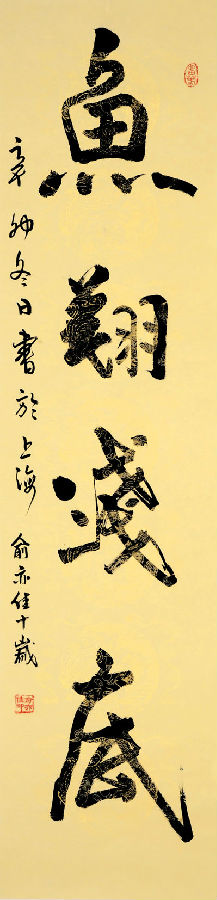 魚翔淺底
辛卯冬日書於上海 俞亦佳十歲